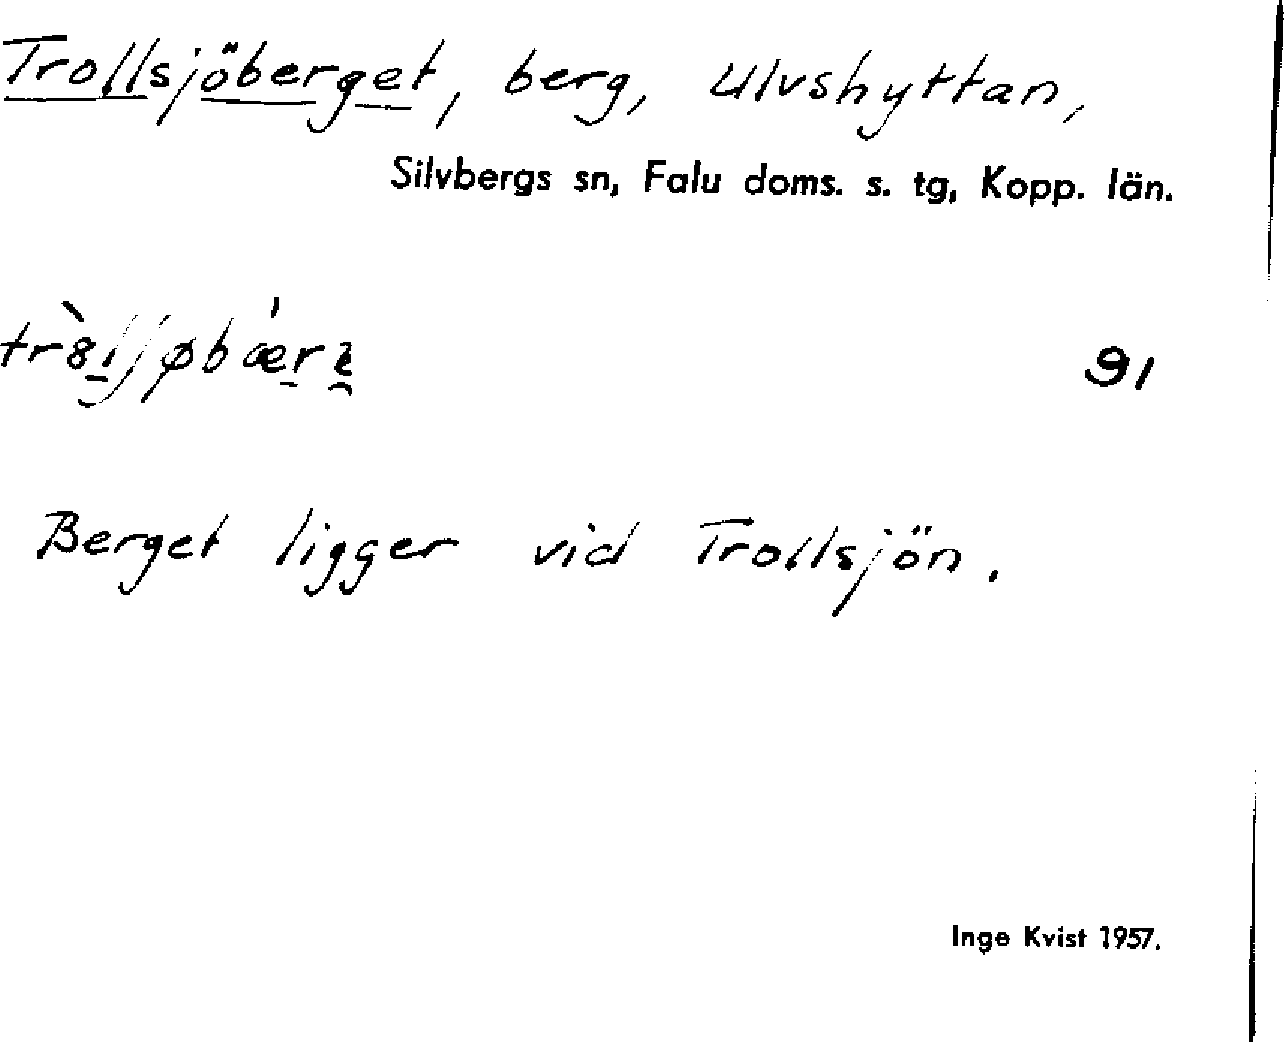 Trollsjöberget, berg, Ulvshyttan,
Silvbergs sn, Falu doms. s. tg, Kopp. län.
91
Berget ligger vid Trollsjön.
Inge Kvist 1957.